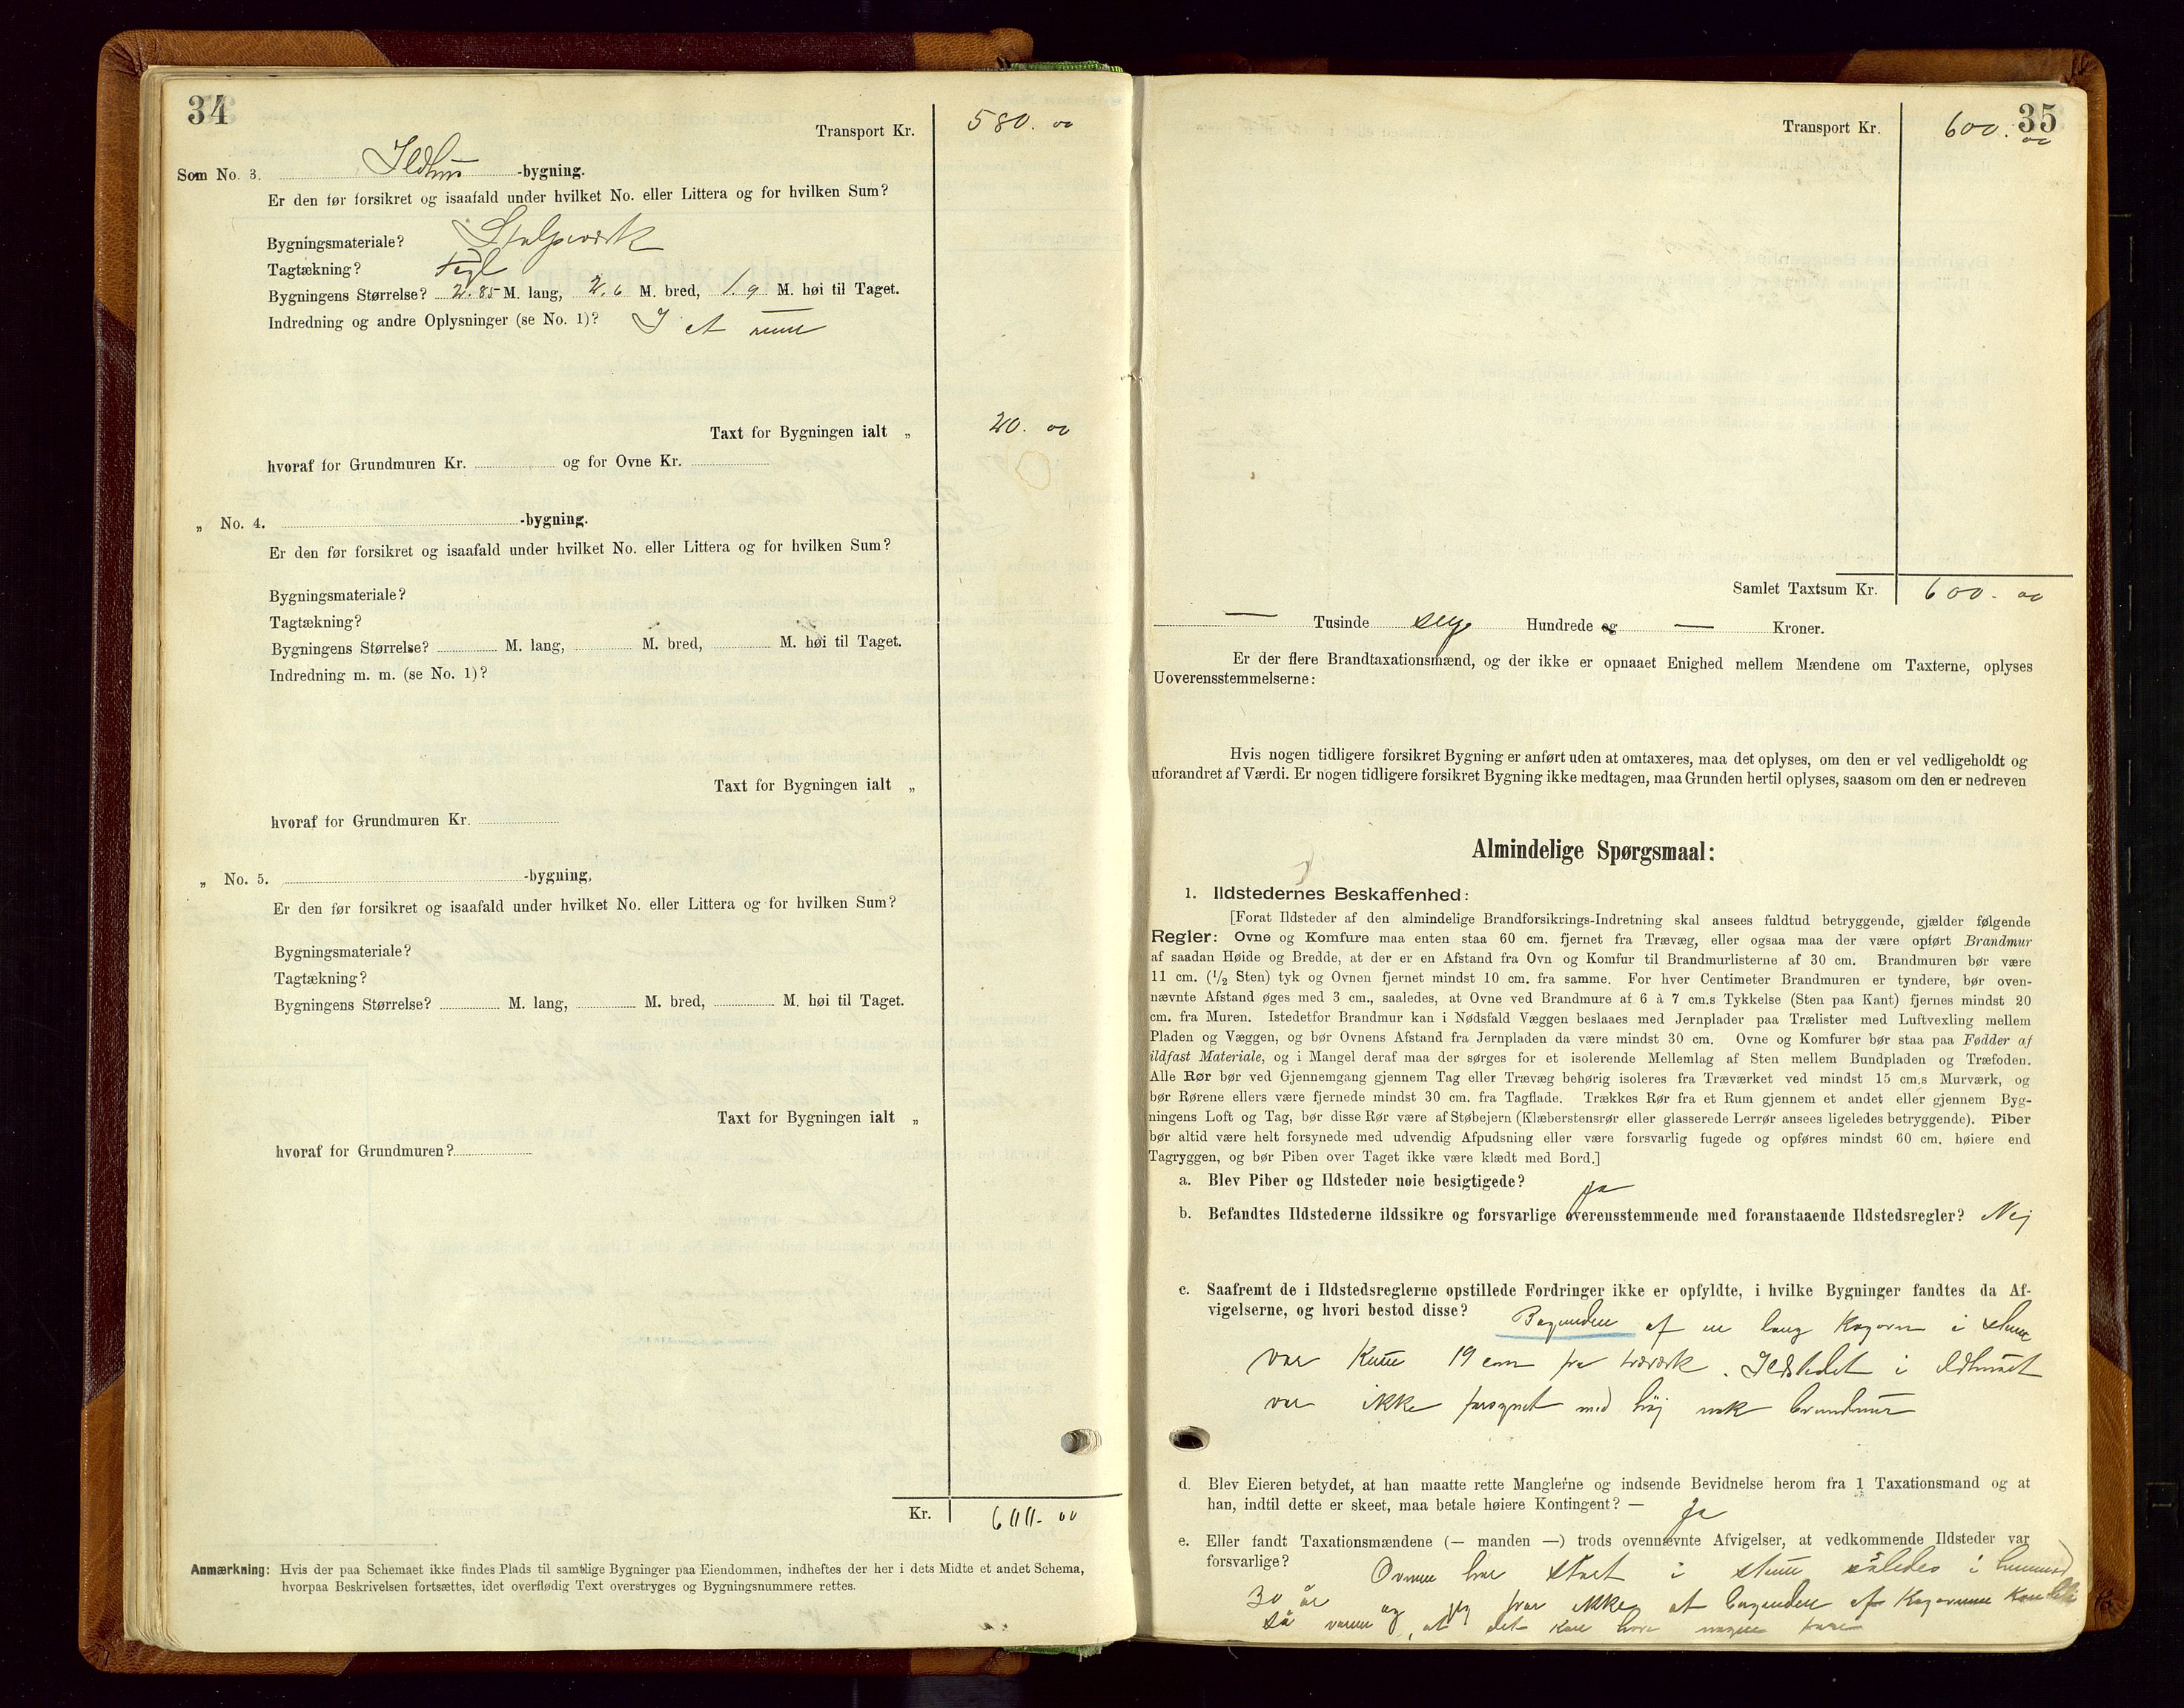 34
Transport Kr. 580. 00
Som No. 3. Ildhus -bygning.
Er den før forsikret og isaafald under hvilket No. eller Littera og for hvilken Sum?
Bygningsmateriale? Stolpeværk
Tagtækning? Tegl
Bygningens Størrelse? 2.85 M. lang, 2.6 M. bred, 1.9 M. høi til Taget.
Indredning og andre Oplysninger (se No. 1)? I et rum
Taxt for Bygningen ialt „ 20. 00
hvoraf for Grundmuren Kr. og for Ovne Kr.
„ No. 4. -bygning.
Er den før forsikret og isaafald under hvilket No. eller Littera og for hvilken Sum?
Bygningsmateriale?
Tagtækning?
Bygningens Størrelse? M. lang, M. bred, M. høi til Taget.
Indredning m. m. (se No. 1)?
Taxt for Bygningen ialt „
hvoraf for Grundmuren Kr.
„ No. 5. -bygning,
Er den før forsikret og isaafald under hvilket No. eller Littera og for hvilken Sum?
Bygningsmateriale?
Tagtækning?
Bygningens Størrelse? M. lang, M. bred, M. høi til Taget.
Taxt for Bygningen ialt „
hvoraf for Grundmuren?
Kr. 600. 00
Anmærkning: Hvis der paa Schemaet ikke findes Plads til samtlige Bygninger paa Eiendommen, indheftes der her i dets Midte et andet Schema,
hvorpaa Beskrivelsen fortsættes, idet overflødig Text overstryges og Bygningsnummere rettes.
35
Transport Kr. 600. 00
Samlet Taxtsum Kr. 600. 00
— Tusinde sex Hundrede og — Kroner.
Er der flere Brandtaxationsmænd, og der ikke er opnaaet Enighed mellem Mændene om Taxterne, oplyses
Uoverensstemmelserne:
Hvis nogen tidligere forsikret Bygning er anført uden at omtaxeres, maa det oplyses, om den er vel vedligeholdt og
uforandret af Værdi. Er nogen tidligere forsikret Bygning ikke medtagen, maa Grunden hertil oplyses, saasom om den er nedreven
Almindelige Spørgsmaal:
1. Ildstedernes Beskaffenhed:
[Forat Ildsteder af den almindelige Brandforsikrings-Indretning skal ansees fuldtud betryggende, gjælder følgende
Regler: Ovne og Komfure maa enten staa 60 cm. fjernet fra Trævæg, eller ogsaa maa der være opført Brandmur
af saadan Høide og Bredde, at der er en Afstand fra Ovn og Komfur til Brandmurlisterne af 30 cm. Brandmuren bør være
11 cm. (1/2 Sten) tyk og Ovnen fjernet mindst 10 cm. fra samme. For hver Centimeter Brandmuren er tyndere, bør oven-
nævnte Afstand øges med 3 cm., saaledes, at Ovne ved Brandmure af 6 à 7 cm.s Tykkelse (Sten paa Kant) fjernes mindst 20
cm. fra Muren. Istedetfor Brandmur kan i Nødsfald Væggen beslaaes med Jernplader paa Trælister med Luftvexling mellem
Pladen og Væggen, og bør Ovnens Afstand fra Jernpladen da være mindst 30 cm. Ovne og Komfurer bør staa paa Fødder af
ildfast Materiale, og i Mangel deraf maa der sørges for et isolerende Mellemlag af Sten mellem Bundpladen og Træfoden.
Alle Rør bør ved Gjennemgang gjennem Tag eller Trævæg behørig isoleres fra Træværket ved mindst 15 cm.s Murværk, og
bør Rørene ellers være fjernede mindst 30 cm. fra Tagflade. Trækkes Rør fra et Rum gjennem et andet eller gjennem Byg-
ningens Loft og Tag, bør disse Rør være af Støbejern (Klæberstensrør eller glasserede Lerrør ansees ligeledes betryggende). Piber
bør altid være helt forsynede med udvendig Afpudsning eller være forsvarlig fugede og opføres mindst 60 cm. høiere end
Tagryggen, og bør Piben over Taget ikke være klædt med Bord.]
a. Blev Piber og Ildsteder nøie besigtigede? ja
b. Befandtes Ildstederne ildssikre og forsvarlige overensstemmende med foranstaaende Ildstedsregler? Nej
c. Saafremt de i Ildstedsreglerne opstillede Fordringer ikke er opfyldte, i hvilke Bygninger fandtes da Af-
vigelserne, og hvori bestod disse? Bagenden af en lang Kogovn i stuen
var kun 19 cm fra træværk. Ildstedet i ildhuset
var ikke forsynet med høj nok brandmur
d. Blev Eieren betydet, at han maatte rette Manglerne og indsende Bevidnelse herom fra 1 Taxationsmand og at
han, indtil dette er skeet, maa betale høiere Kontingent? — Ja
e. Eller fandt Taxationsmændene (— manden —) trods ovennævnte Afvigelser, at vedkommende Ildsteder var
forsvarlige? Ovnen har stået i stuen således i
30 år og jeg tror ikke at bagenden af Kogovnen kan
så varm, at det kan have nogen fare